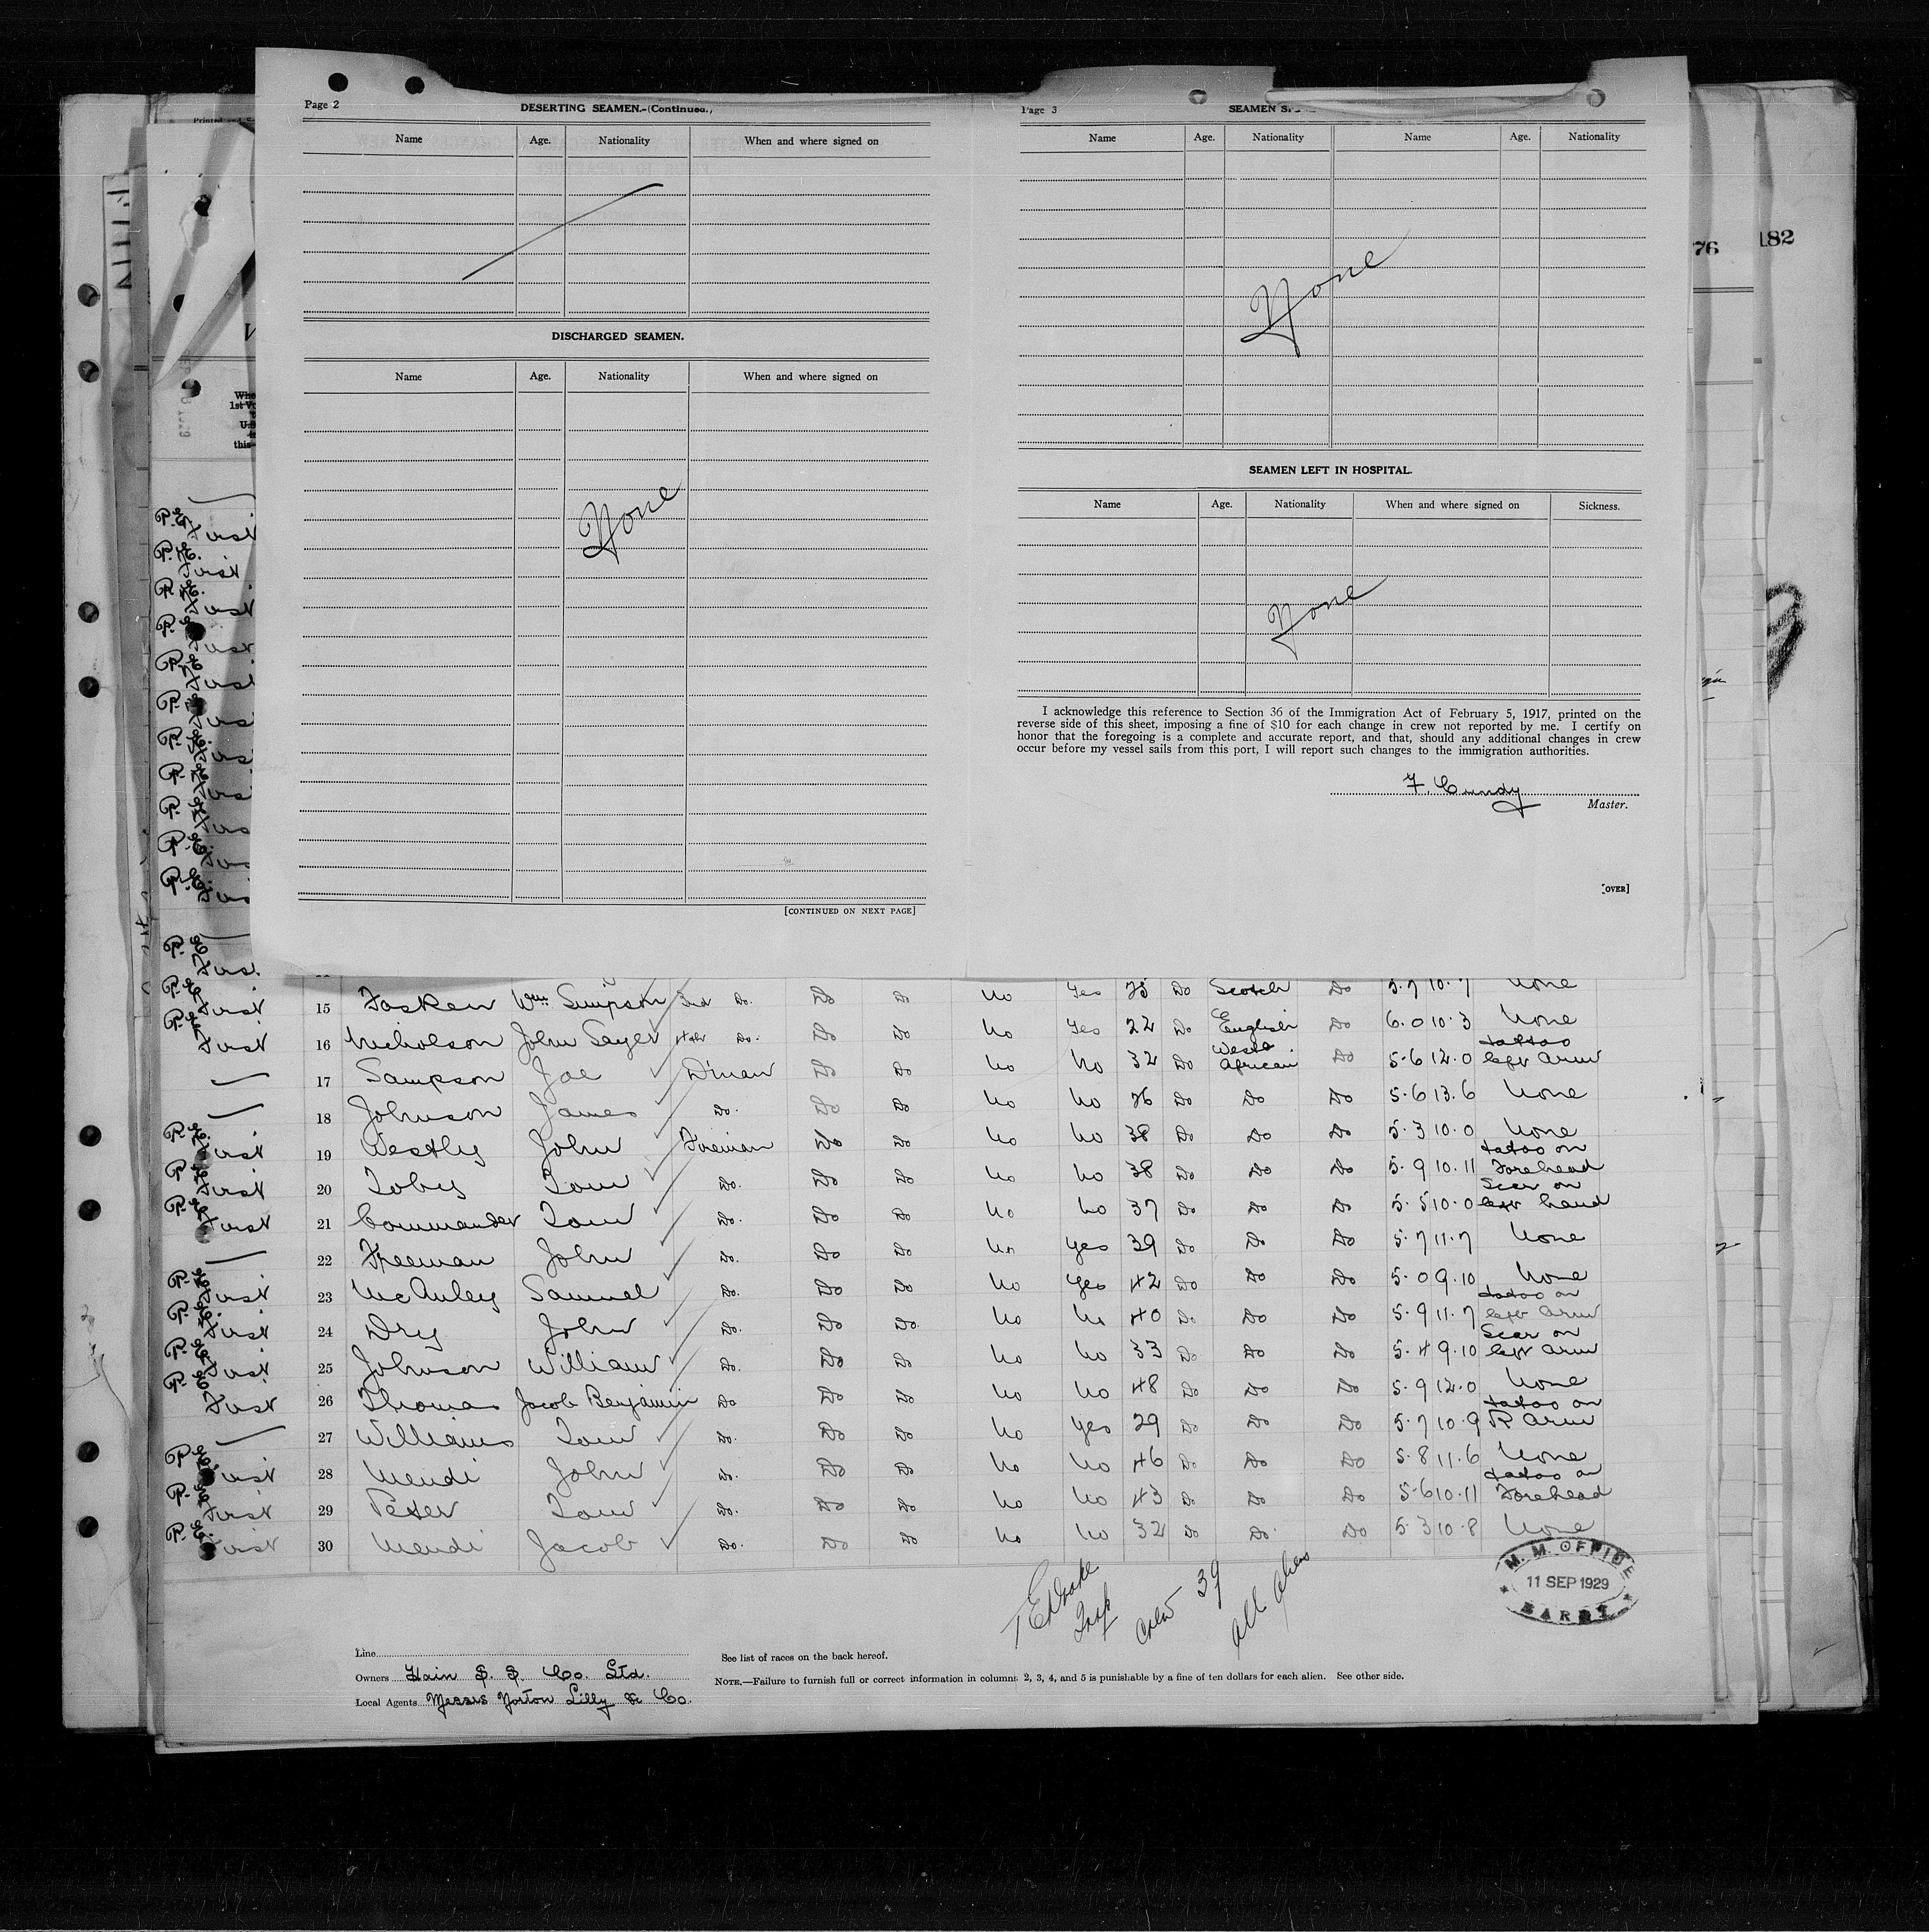 Page 2
DESERTING SEAMEN.-(Continued.)
Name Age. Nationality When and where signed on
DISCHARGED SEAMEN.
Name Age. Nationality When and where signed on
None
[CONTINUED ON NEXT PAGE]
Page 3
SEAMEN
Name Age. Nationality Name Age. Nationality
None
SEAMEN LEFT IN HOSPITAL.
Name Age. Nationality When and where signed on Sickness.
None
I acknowledge this reference to Section 36 of the Immigration Act of February 5, 1917, printed on the
reverse side of this sheet, imposing a fine of $10 for each change in crew not reported by me. I certify on
honor that the foregoing is a complete and accurate report, and that, should any additional changes in crew
occur before my vessel sails from this port, I will report such changes to the immigration authorities.
F. Cundy
Master.
[OVER]
76
182
First 15 Tosken Wm Simpson 3rd Do. Do Do No Yes 25 Do Scotch Do 5.7 10.7 None
First 16 Nicholson John Sayer 4th Do. Do Do No Yes 22 Do English Do 6.0 10.3 None
17 Sampson Joe D'man Do Do No No 32 Do West African Do 5.6 12.0 tattoo left arm
18 Johnson James Do. Do Do No No 26 Do Do Do 5.6 13.6 None
First 19 Westly John Fireman Do Do No No 38 Do Do Do 5.3 10.0 None
First 20 Toby Tom Do. Do Do No No 38 Do Do Do 5.9 10.11 tatoo on Forehead
First 21 Commander Tom Do. Do Do No No 37 Do Do Do 5.5 10.0 Scar on left hand
22 Freeman John Do. Do Do No Yes 39 Do Do Do 5.7 11.7 None
First 23 McAuley Samuel Do. Do Do No Yes 42 Do Do Do 5.0 9.10 None
First 24 Dry John Do. Do Do. No No 40 Do Do Do 5.9 11.7 tatoo on left arm
First 25 Johnson William Do. Do Do No No 33 Do Do Do 5.4 9.10 Scar on left arm
First 26 Thomas Jacob Benjamin Do Do Do No No 48 Do Do Do 5.9 12.0 None
27 Williams Tom Do. Do Do No Yes 29 Do Do Do 5.7 10.9 tatoo on R arm
First 28 Mendi John Do. Do Do No No 46 Do Do Do 5.8 11.6 None
First 29 Peter Tom Do. Do Do No No 43 Do Do Do 5.6 10.11 tatoo on Forehead
First 30 Mendi Jacob Do. Do Do No No 32 Do Do. Do 5.3 10.8 None
Insp
Crew 39
all aliens
M. M. OFFICE
11 SEP 1929
BARRY
Line
Owners Hain S. S. Co. Ltd.
Local Agents Messrs Norton Lilly & Co.
See list of races on the back hereof.
NOTE.—Failure to furnish full or correct information in columns 2, 3, 4, and 5 is punishable by a fine of ten dollars for each alien. See other side.